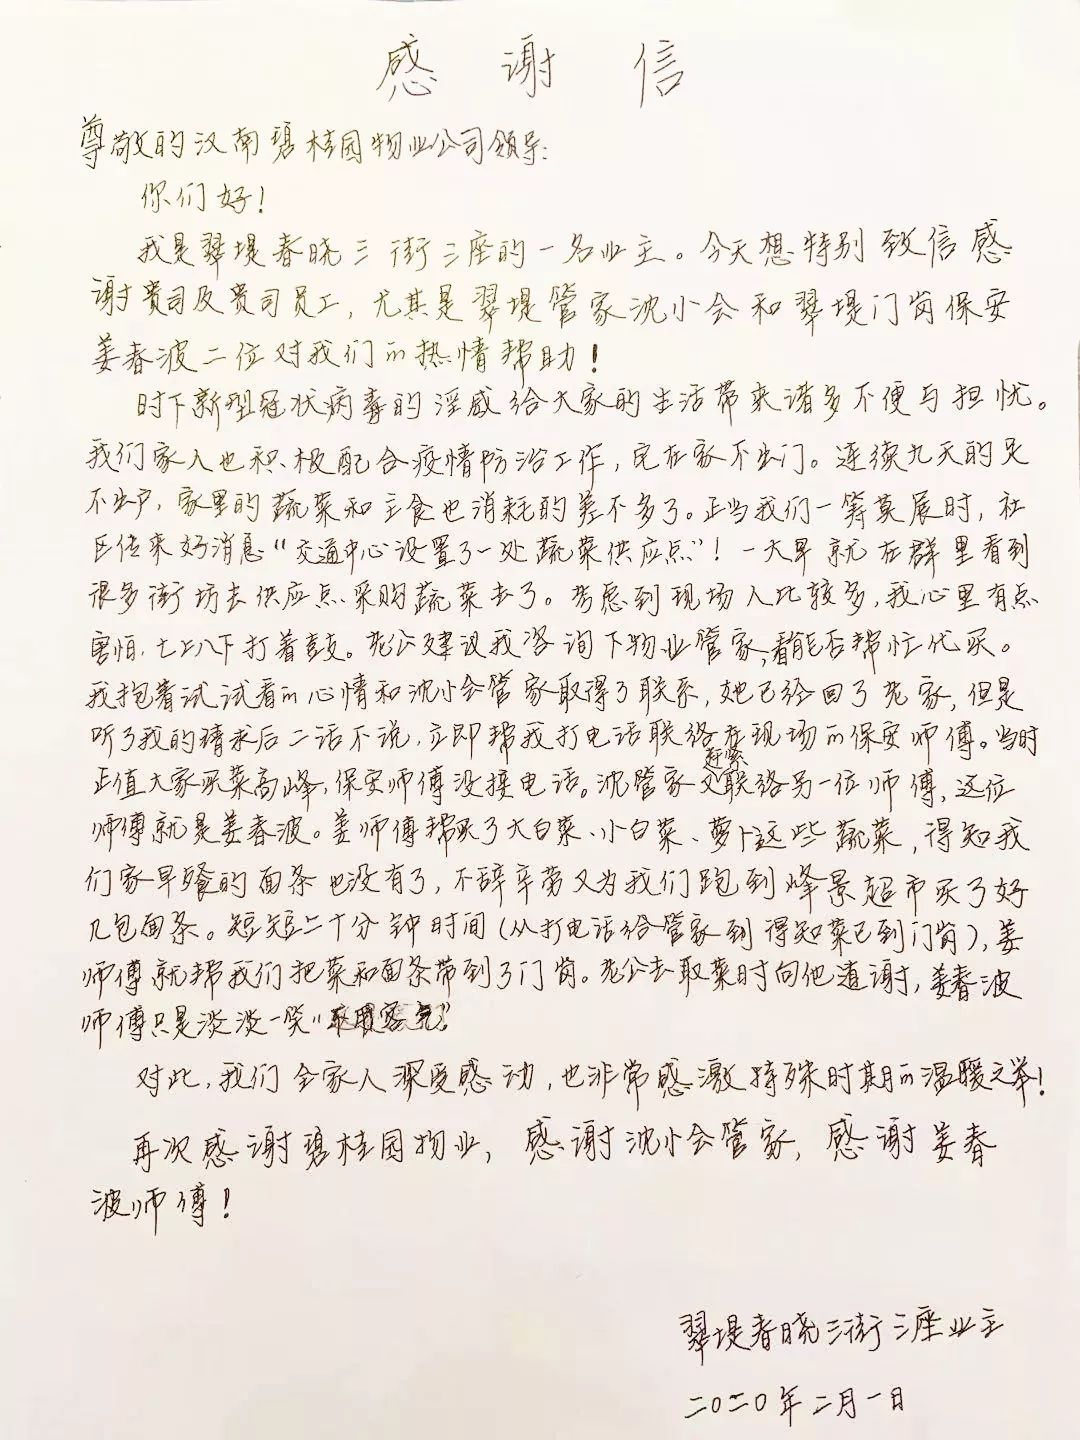 感谢信
尊敬的汉南碧桂园物业公司领导:
你们好!
我是翠堤春晓三街三座的一名业主。今天想特别致信感
谢贵司及贵司员工,尤其是翠堤管家沈小会和翠堤门岗保安
姜春波二位对我们的热情帮助!
时下新型冠状病毒的淫威给大家的生活带来诸多不便与担忧。
我们家人也积极配合疫情防治工作,宅在家不出门。连续九天的足
不出户,家里的蔬菜和主食也消耗的差不多了。正当我们一筹莫展时,社
区传来好消息“交通中心设置了一处蔬菜供应点”!一大早就在群里看到
很多街坊去供应点采购蔬菜去了。考虑到现场人比较多,我心里有点
害怕,七上八下打着鼓。老公建议我咨询下物业管家,看能否帮忙代买。
我抱着试试看的心情和沈小会管家取得了联系,她已经回了老家,但是
听了我的请求后二话不说,立即帮我打电话联络在现场的保安师傅。当时
正值大家买菜高峰,保安师傅没接电话。沈管家又赶紧联络另一位师傅,这位
师傅就是姜春波。姜师傅帮买了大白菜、小白菜、萝卜这些蔬菜,得知我
们家早餐的面条也没有了,不辞辛劳又为我们跑到峰景超市买了好
几包面条。短短二十分钟时间(从打电话给管家到得知菜已到门岗),姜
师傅就帮我们把菜和面条带到了门岗。老公去取菜时向他道谢,姜春波
师傅只是淡淡一笑“不用客气”
对此,我们全家人深受感动,也非常感激特殊时期的温暖之举!
再次感谢碧桂园物业,感谢沈小会管家,感谢姜春
波师傅!
翠堤春晓三街三座业主
二〇二〇年二月一日